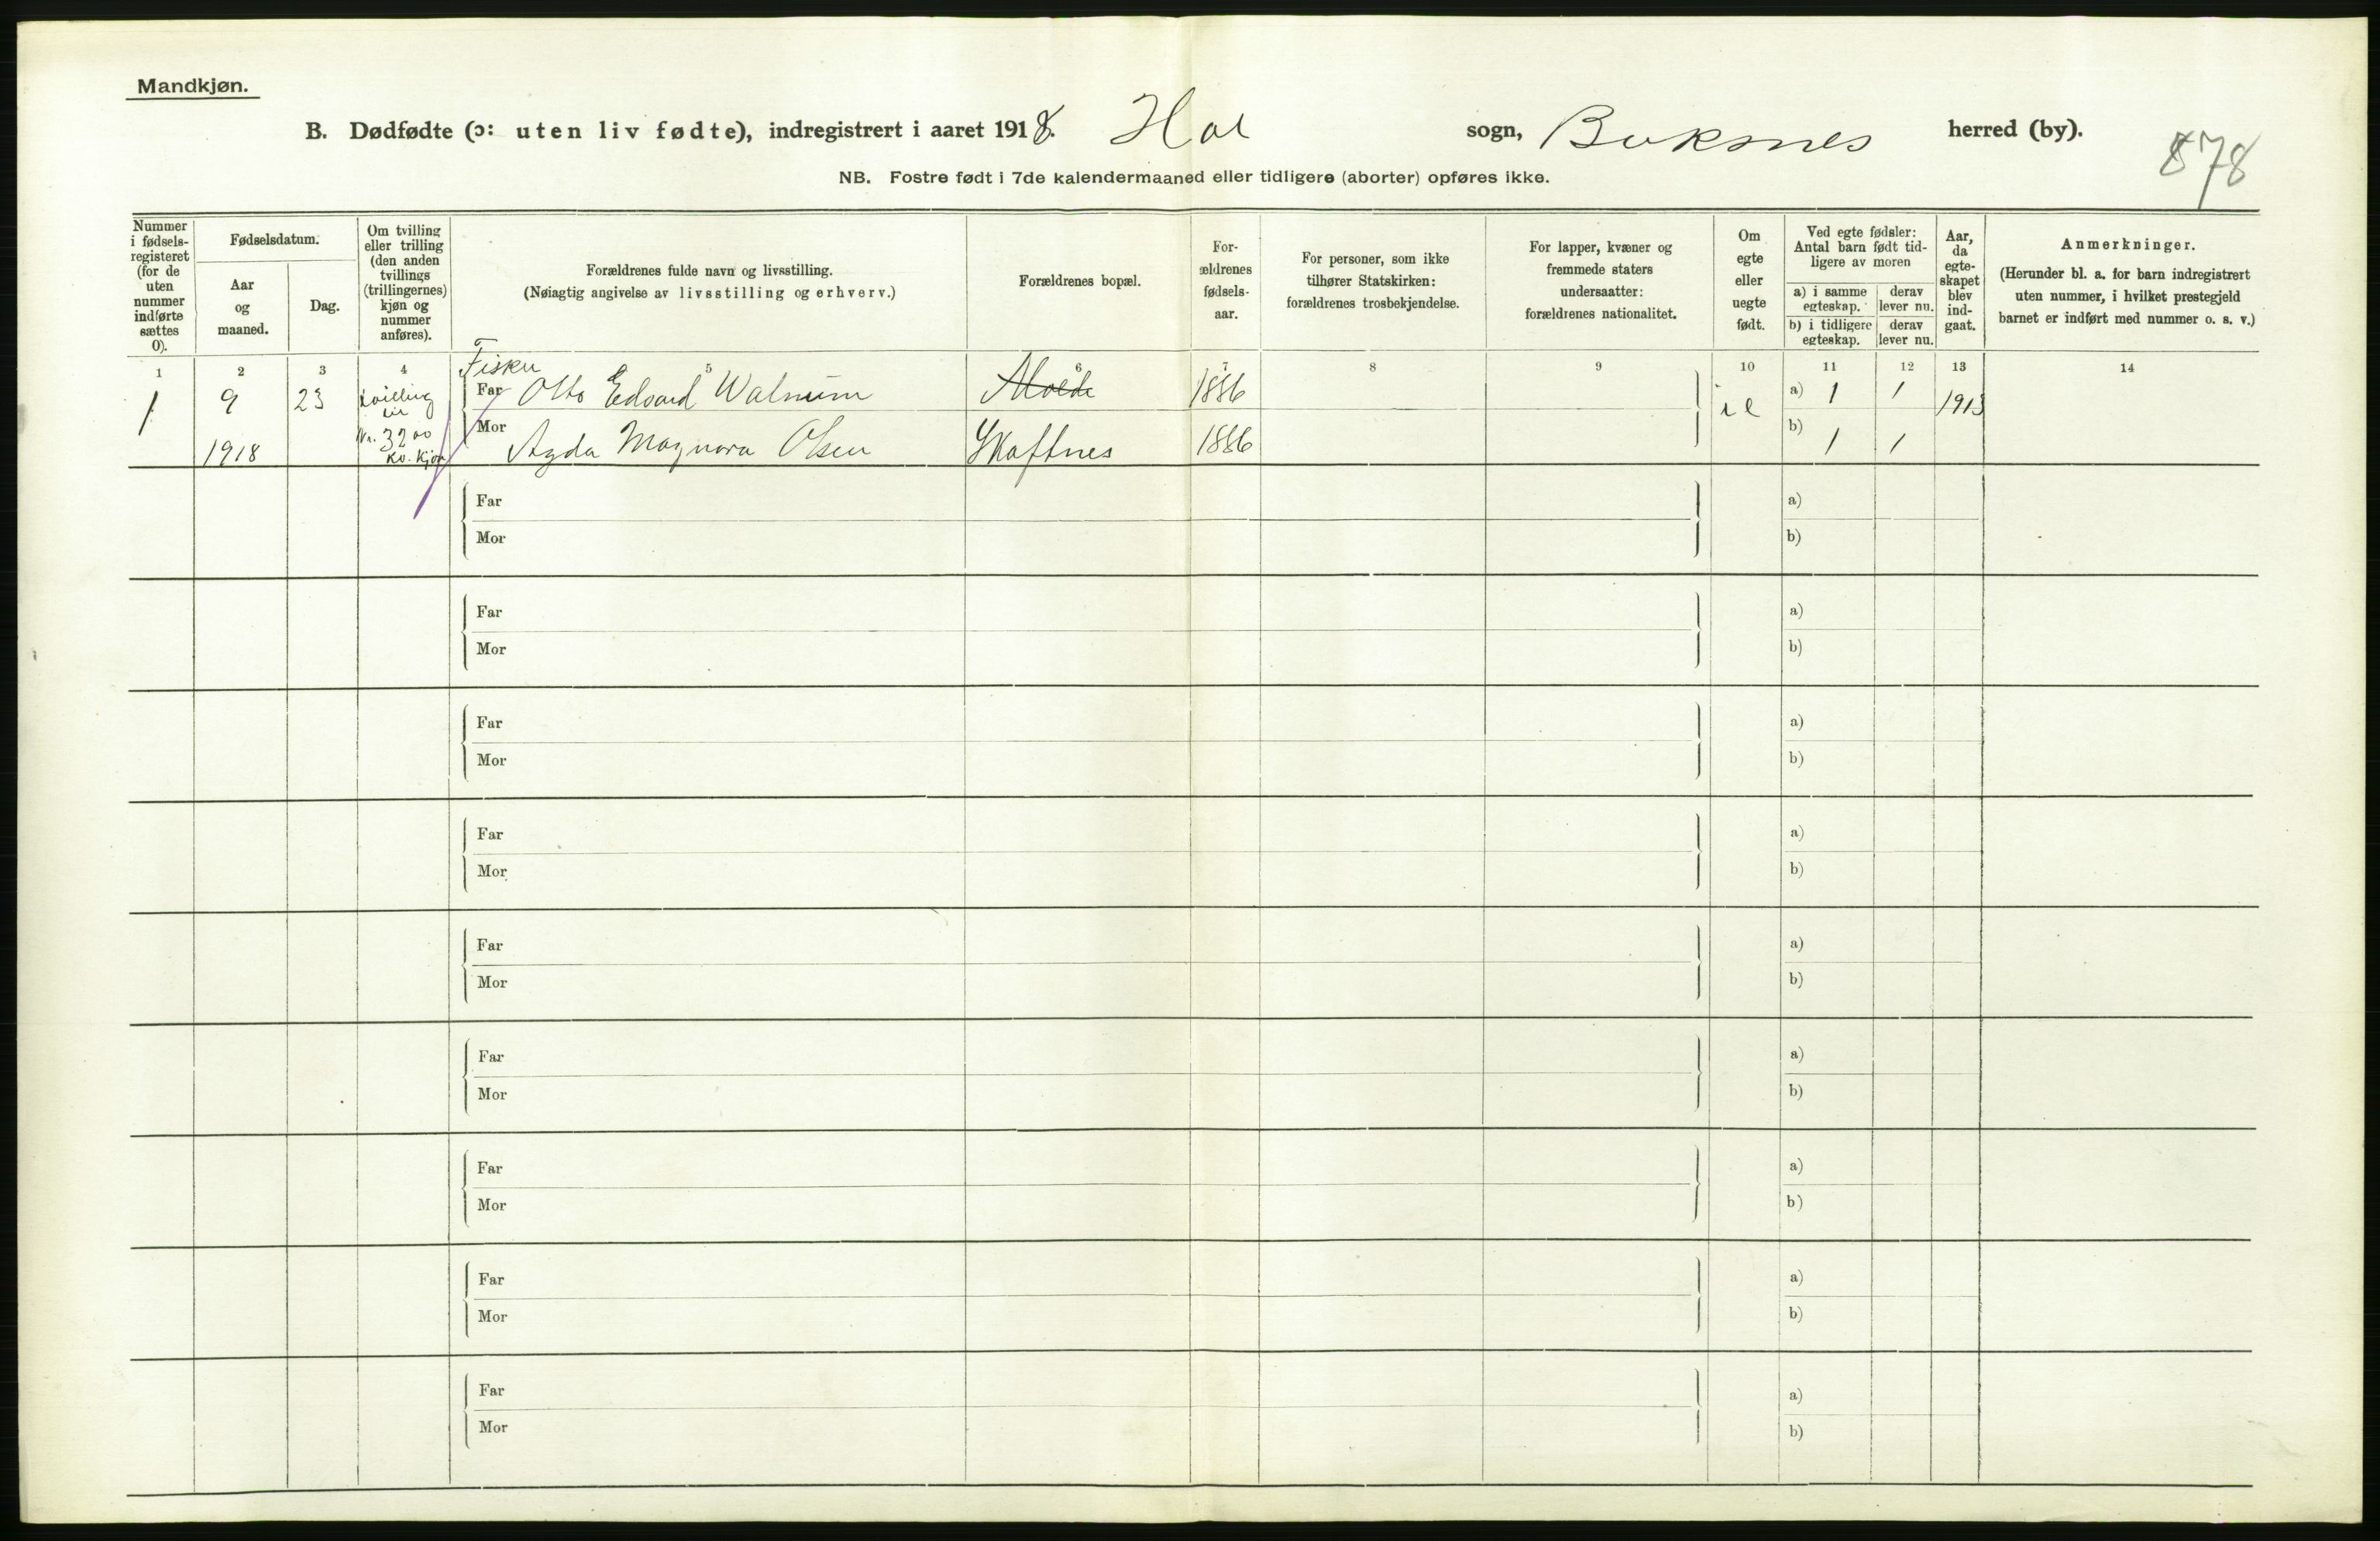 Mandkjøn.
B. Dødfødte (ɔ: uten liv fødte), indregistrert i aaret 1918. Hol sogn, Buksnes herred (by).
878
NB. Fostre født i 7de kalendermaaned eller tidligere (aborter) opføres ikke.
Nummer i fødsels-registeret (for de uten nummer indførte sættes 0).
Fødselsdatum.
Aar og maaned.
Dag.
Om tvilling eller trilling (den anden tvillings (trillingernes) kjøn og nummer anføres).
Forældrenes fulde navn og livsstilling.
(Nøiagtig angivelse av livsstilling og erhverv.)
Forældrenes bopæl.
For-ældrenes fødsels-aar.
For personer, som ikke tilhører Statskirken: forældrenes trosbekjendelse.
For lapper, kvæner og fremmede staters undersaatter: forældrenes nationalitet.
Om egte eller uegte født.
Ved egte fødsler: Antal barn født tid-ligere av moren
a) i samme egteskap. derav lever nu.
b) i tidligere egteskap. derav lever nu.
Aar, da egte-skapet blev ind-gaat.
Anmerkninger.
(Herunder bl. a. for barn indregistrert uten nummer, i hvilket prestegjeld barnet er indført med nummer o. s. v.)
1 2 3 4 5 6 7 8 9 10 11 12 13 14
Fisker
1 9 23 tvilling Far Otto Edvard Walnum 1886 a) 1 1 1913
1918 Nr. 32 Kv. kjøn Mor Agda Magnora Olsen Skaftnes 1886 b) 1 1
Far a)
Mor b)
Far a)
Mor b)
Far a)
Mor b)
Far a)
Mor b)
Far a)
Mor b)
Far a)
Mor b)
Far a)
Mor b)
Far a)
Mor b)
Far a)
Mor b)